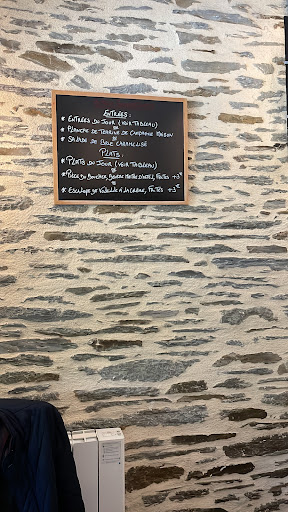 ENTRÉES :
* ENTRÉES DU JOUR (VOIR TABLEAU)
* PLANCHE DE TERRINE DE CAMPAGNE MAISON
* SALADE DE BRIE CARAMÉLISÉ
PLATS :
* PLATS DU JOUR (VOIR TABLEAU)
* PIÈCE DU BOUCHER, BEURRE MAÎTRE D'HÔTEL, FRITES +3€
* ESCALOPE DE VOLAILLE À LA CRÈME, FRITES +3€